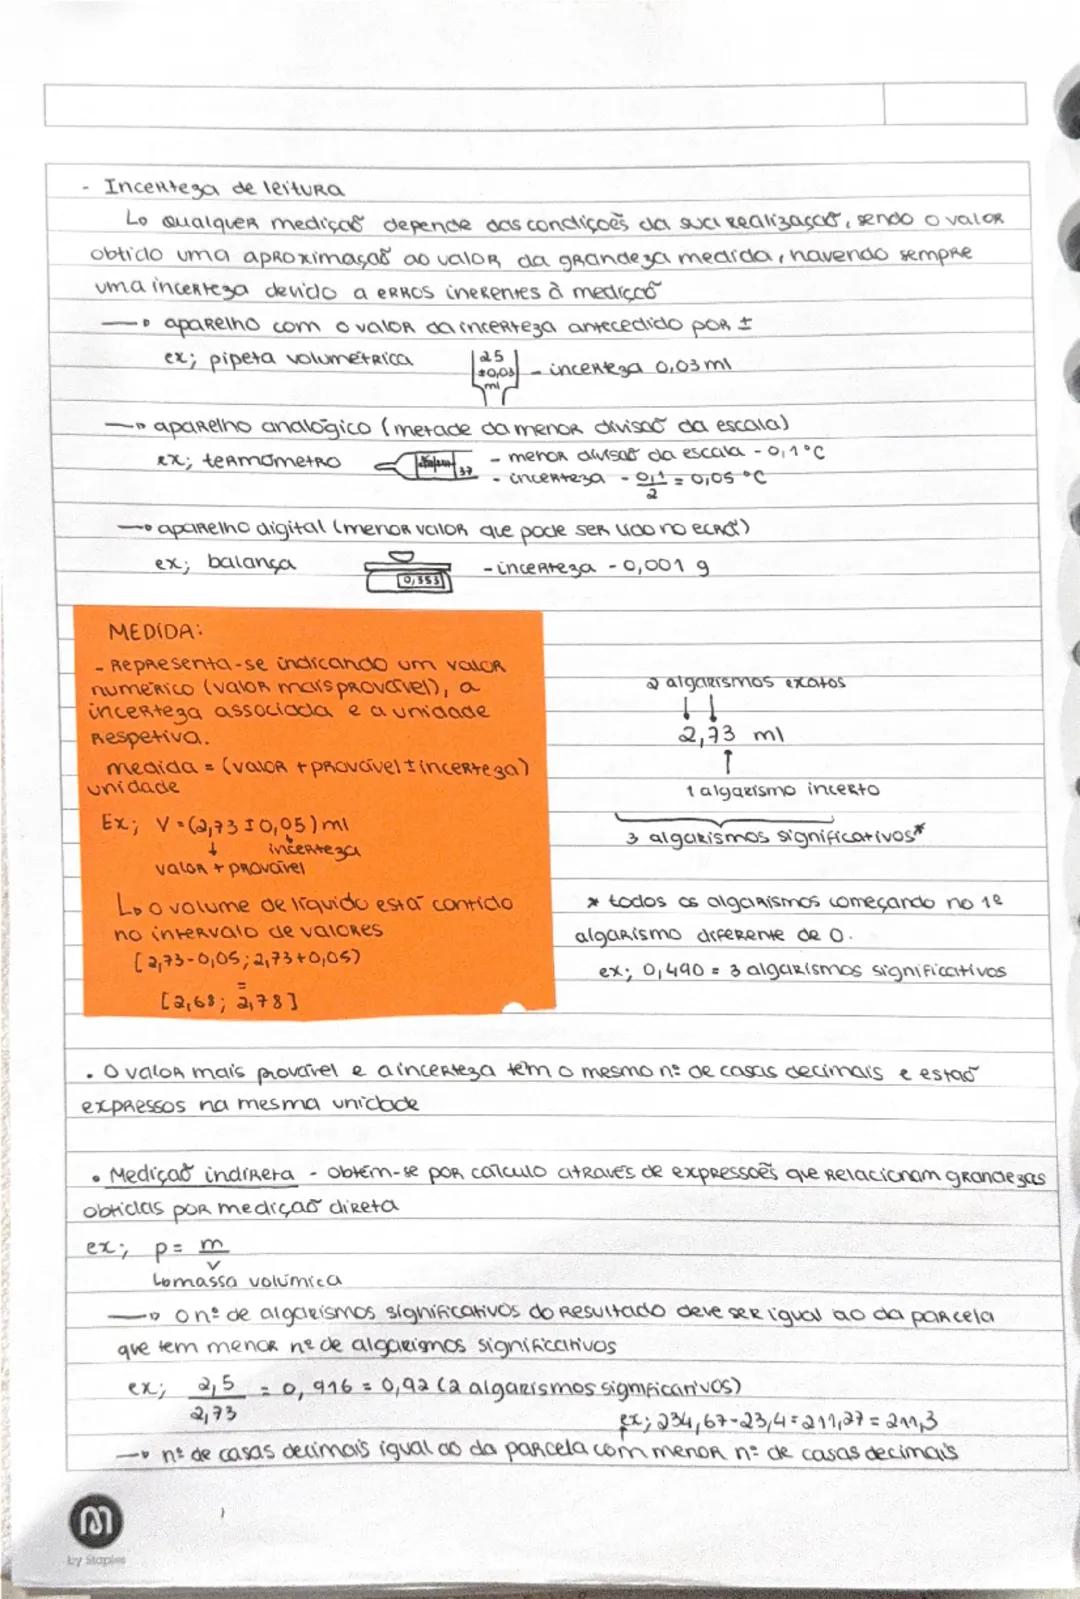 - Incerteza de leitura
↳ Qualquer medição depende das condições da sua realização, sendo o valor
obtido uma aproximação ao valor da grandeza medida, havendo sempre
uma incerteza devido a erros inerentes à medição
→ aparelho com o valor da incerteza antecedido por ±
ex; pipeta volumétrica
25
±0,03
ml
- incerteza 0,03 ml
→ aparelho analógico (metade da menor divisão da escala)
ex; termómetro
37
- menor divisão da escala - 0,1 °C
- incerteza - 0,1/2 = 0,05 °C
→ aparelho digital (menor valor que pode ser lido no ecrã)
ex; balança
0,353
- incerteza - 0,001 g
MEDIDA:
- Representa-se indicando um valor
numérico (valor mais provável), a
incerteza associada e a unidade
respetiva.
medida = (valor + provável ± incerteza)
unidade
Ex; V = (2,73 ± 0,05) ml
↓ incerteza
valor + provável
↳ o volume de líquido está contido
no intervalo de valores
[2,73-0,05; 2,73+0,05)
=
[2,68; 2,78]
2 algarismos exatos
↓ ↓
2,73 ml
↑
1 algarismo incerto
3 algarismos significativos*
* todos os algarismos começando no 1º
algarismo diferente de 0.
ex; 0,490 = 3 algarismos significativos
• O valor mais provável e a incerteza têm o mesmo nº de casas decimais e estão
expressos na mesma unidade
• Medição indireta - obtém-se por cálculo através de expressões que relacionam grandezas
obtidas por medição direta
ex; p = m
v
↳ massa volúmica
→ o nº de algarismos significativos do resultado deve ser igual ao da parcela
que tem menor nº de algarismos significativos
ex; 2,5 = 0,916 = 0,92 (2 algarismos significativos)
2,73
ex; 234,67-23,4 = 211,27 = 211,3
→ nº de casas decimais igual ao da parcela com menor nº de casas decimais
by Staples